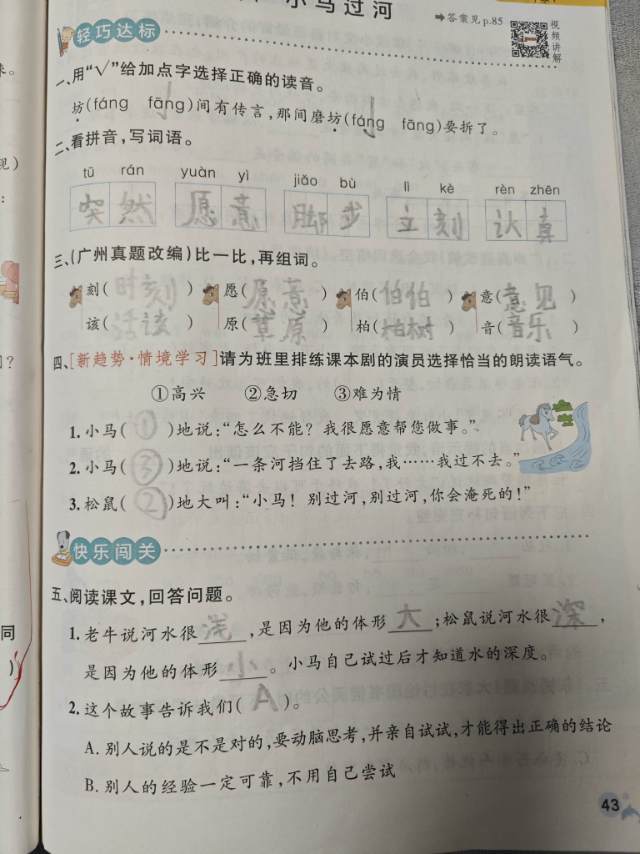 小马过河
➡答案见p.85
视频讲解
轻巧达标
一、用“√”给加点字选择正确的读音。
坊(fáng fāng)间有传言,那间磨坊(fáng fāng)要拆了。
二、看拼音,写词语。
tū rán yuàn yì jiǎo bù lì kè rèn zhēn
突然 愿意 脚步 立刻 认真
三、(广州真题改编)比一比,再组词。
刻(时刻) 愿(愿意) 伯(伯伯) 意(意见)
该(活该) 原(草原) 柏(柏树) 音(音乐)
四、[新趋势·情境学习]请为班里排练课本剧的演员选择恰当的朗读语气。
①高兴 ②急切 ③难为情
1.小马(①)地说:“怎么不能?我很愿意帮您做事。”
2.小马(③)地说:“一条河挡住了去路,我……我过不去。”
3.松鼠(②)地大叫:“小马!别过河,别过河,你会淹死的!”
快乐闯关
五、阅读课文,回答问题。
1.老牛说河水很浅,是因为他的体形大;松鼠说河水很深,
是因为他的体形小。小马自己试过后才知道水的深度。
2.这个故事告诉我们(A)。
A.别人说的是不是对的,要动脑思考,并亲自试试,才能得出正确的结论
B.别人的经验一定可靠,不用自己尝试
43